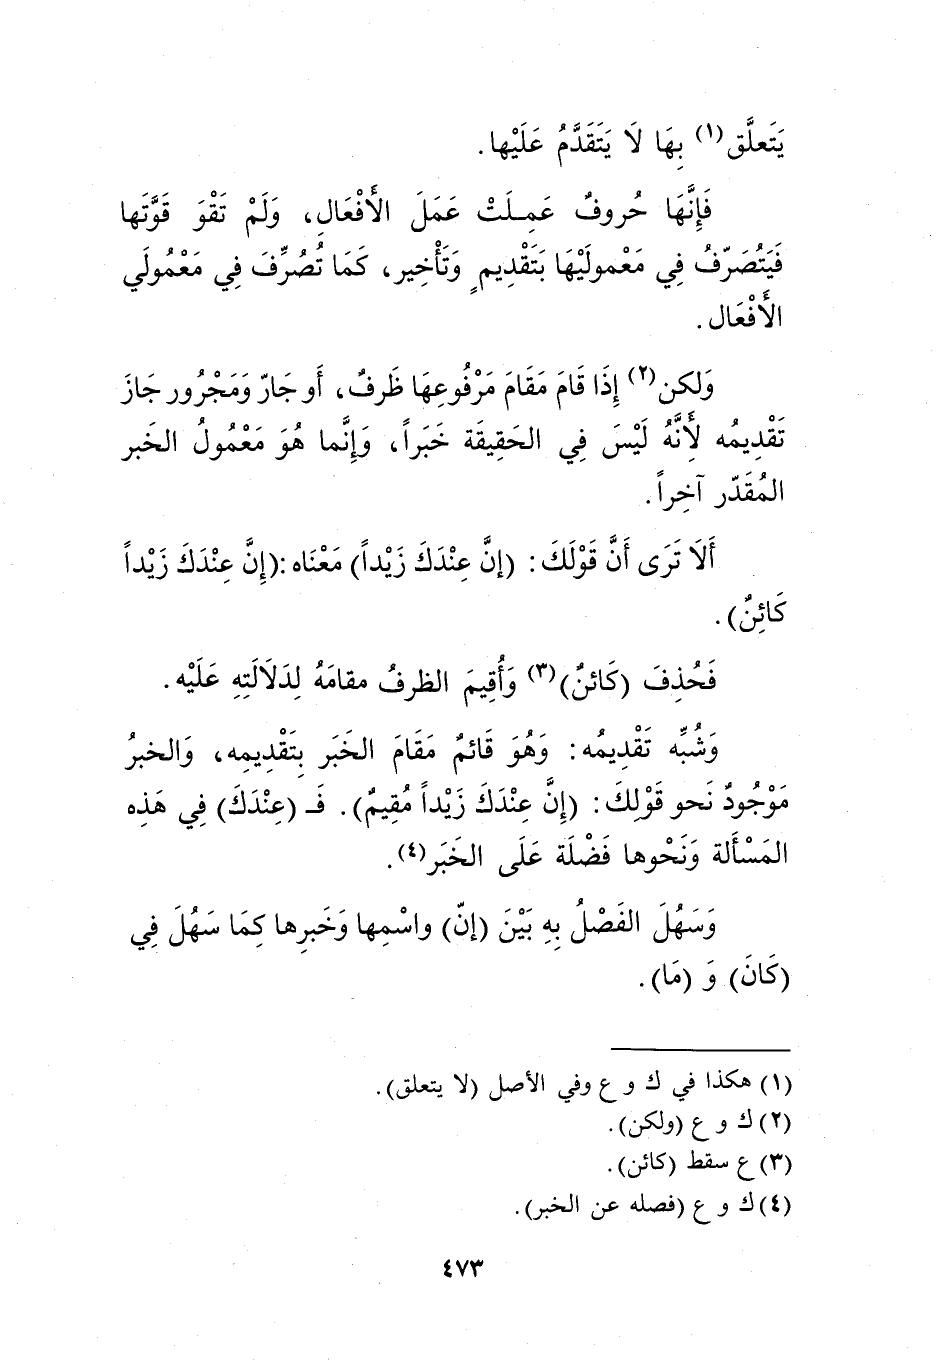 يَتَعلَّق(١) بِهَا لَا يَتَقَدَّمُ عَلَيْها.
فَإِنَّهَا حُروفٌ عَمِلَتْ عَمَلَ الأَفْعَالِ، وَلَمْ تَقْوَ قَوَّتَها
فَيَتُصَرّفُ فِي مَعْمولَيْهَا بَتَقْدِيمٍ وَتَأْخِير، كَمَا تُصُرِّفَ فِي مَعْمُولَي
الأَفْعَال.
وَلكن(٢) إِذَا قَامَ مَقَامَ مَرْفُوعِهَا ظَرفٌ، أَو جَارّ وَمَجْرُور جَازَ
تَقْدِيمُه لأَنَّهُ لَيْسَ فِي الحَقِيقَة خَبَراً، وَإِنَّما هُوَ مَعْمُولُ الخَبر
المُقَدّر آخِراً.
أَلَا تَرَى أَنَّ قَوْلَكَ: (إنَّ عِنْدَكَ زَيْداً) مَعْنَاه:(إِنَّ عِنْدَكَ زَيْداً
كَائِنٌ).
فَحُذِفَ (كَائنٌ)(٣) وَأُقِيمَ الظرفُ مقامَهُ لِدَلَالَتِهِ عَلَيْه.
وَشُبِّه تَقْدِيمُه: وَهُوَ قَائمٌ مَقَامَ الخَبَر بِتَقْدِيمِه، وَالخبرُ
مَوْجُودٌ نَحو قَوْلِكَ: (إِنَّ عِنْدَكَ زَيْداً مُقِيمٌ). فَـ (عِنْدَكَ) فِي هَذِه
المَسْأَلة وَنَحْوها فَضْلَة عَلَى الخَبَر(٤).
وَسَهُلَ الفَصْلُ بِهِ بَيْنَ (إنّ) واسْمِها وَخَبرِها كمَا سَهُلَ فِي
(كَانَ) وَ (مَا).
(١) هكذا في ك و ع وفي الأصل (لا يتعلق).
(٢) ك و ع (ولكن).
(٣) ع سقط (كائن).
(٤) ك و ع (فصله عن الخبر).
٤٧٣